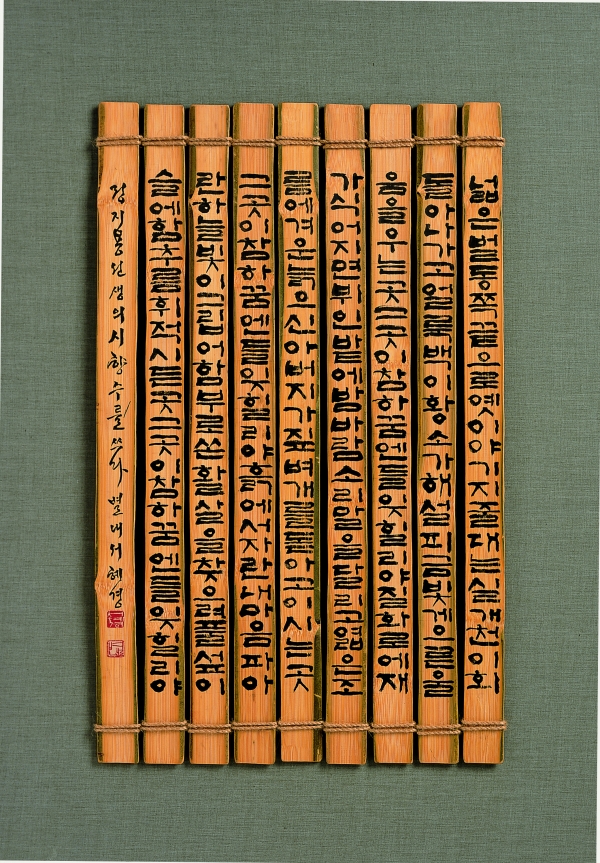 넓은벌동쪽끝으로옛이야기지줄대는실개천이회
돌아나가고얼룩백이황소가해설피금빛게으른울
음을우는곳그곳이참하꿈엔들잊힐리야질화로에재
가식어지면뷔인밭에밤바람소리말을달리고엷은조
름에겨운늙으신아버지가짚벼개를돋아고이시는곳
그곳이참하꿈엔들잊힐리야흙에서자란내마음파아
란하늘빛이그립어함부로쏜활살을찾으려풀섶이
슬에함추름휘적시든곳그곳이참하꿈엔들잊힐리야
정지용선생의시향수를쓰다 별내서혜경